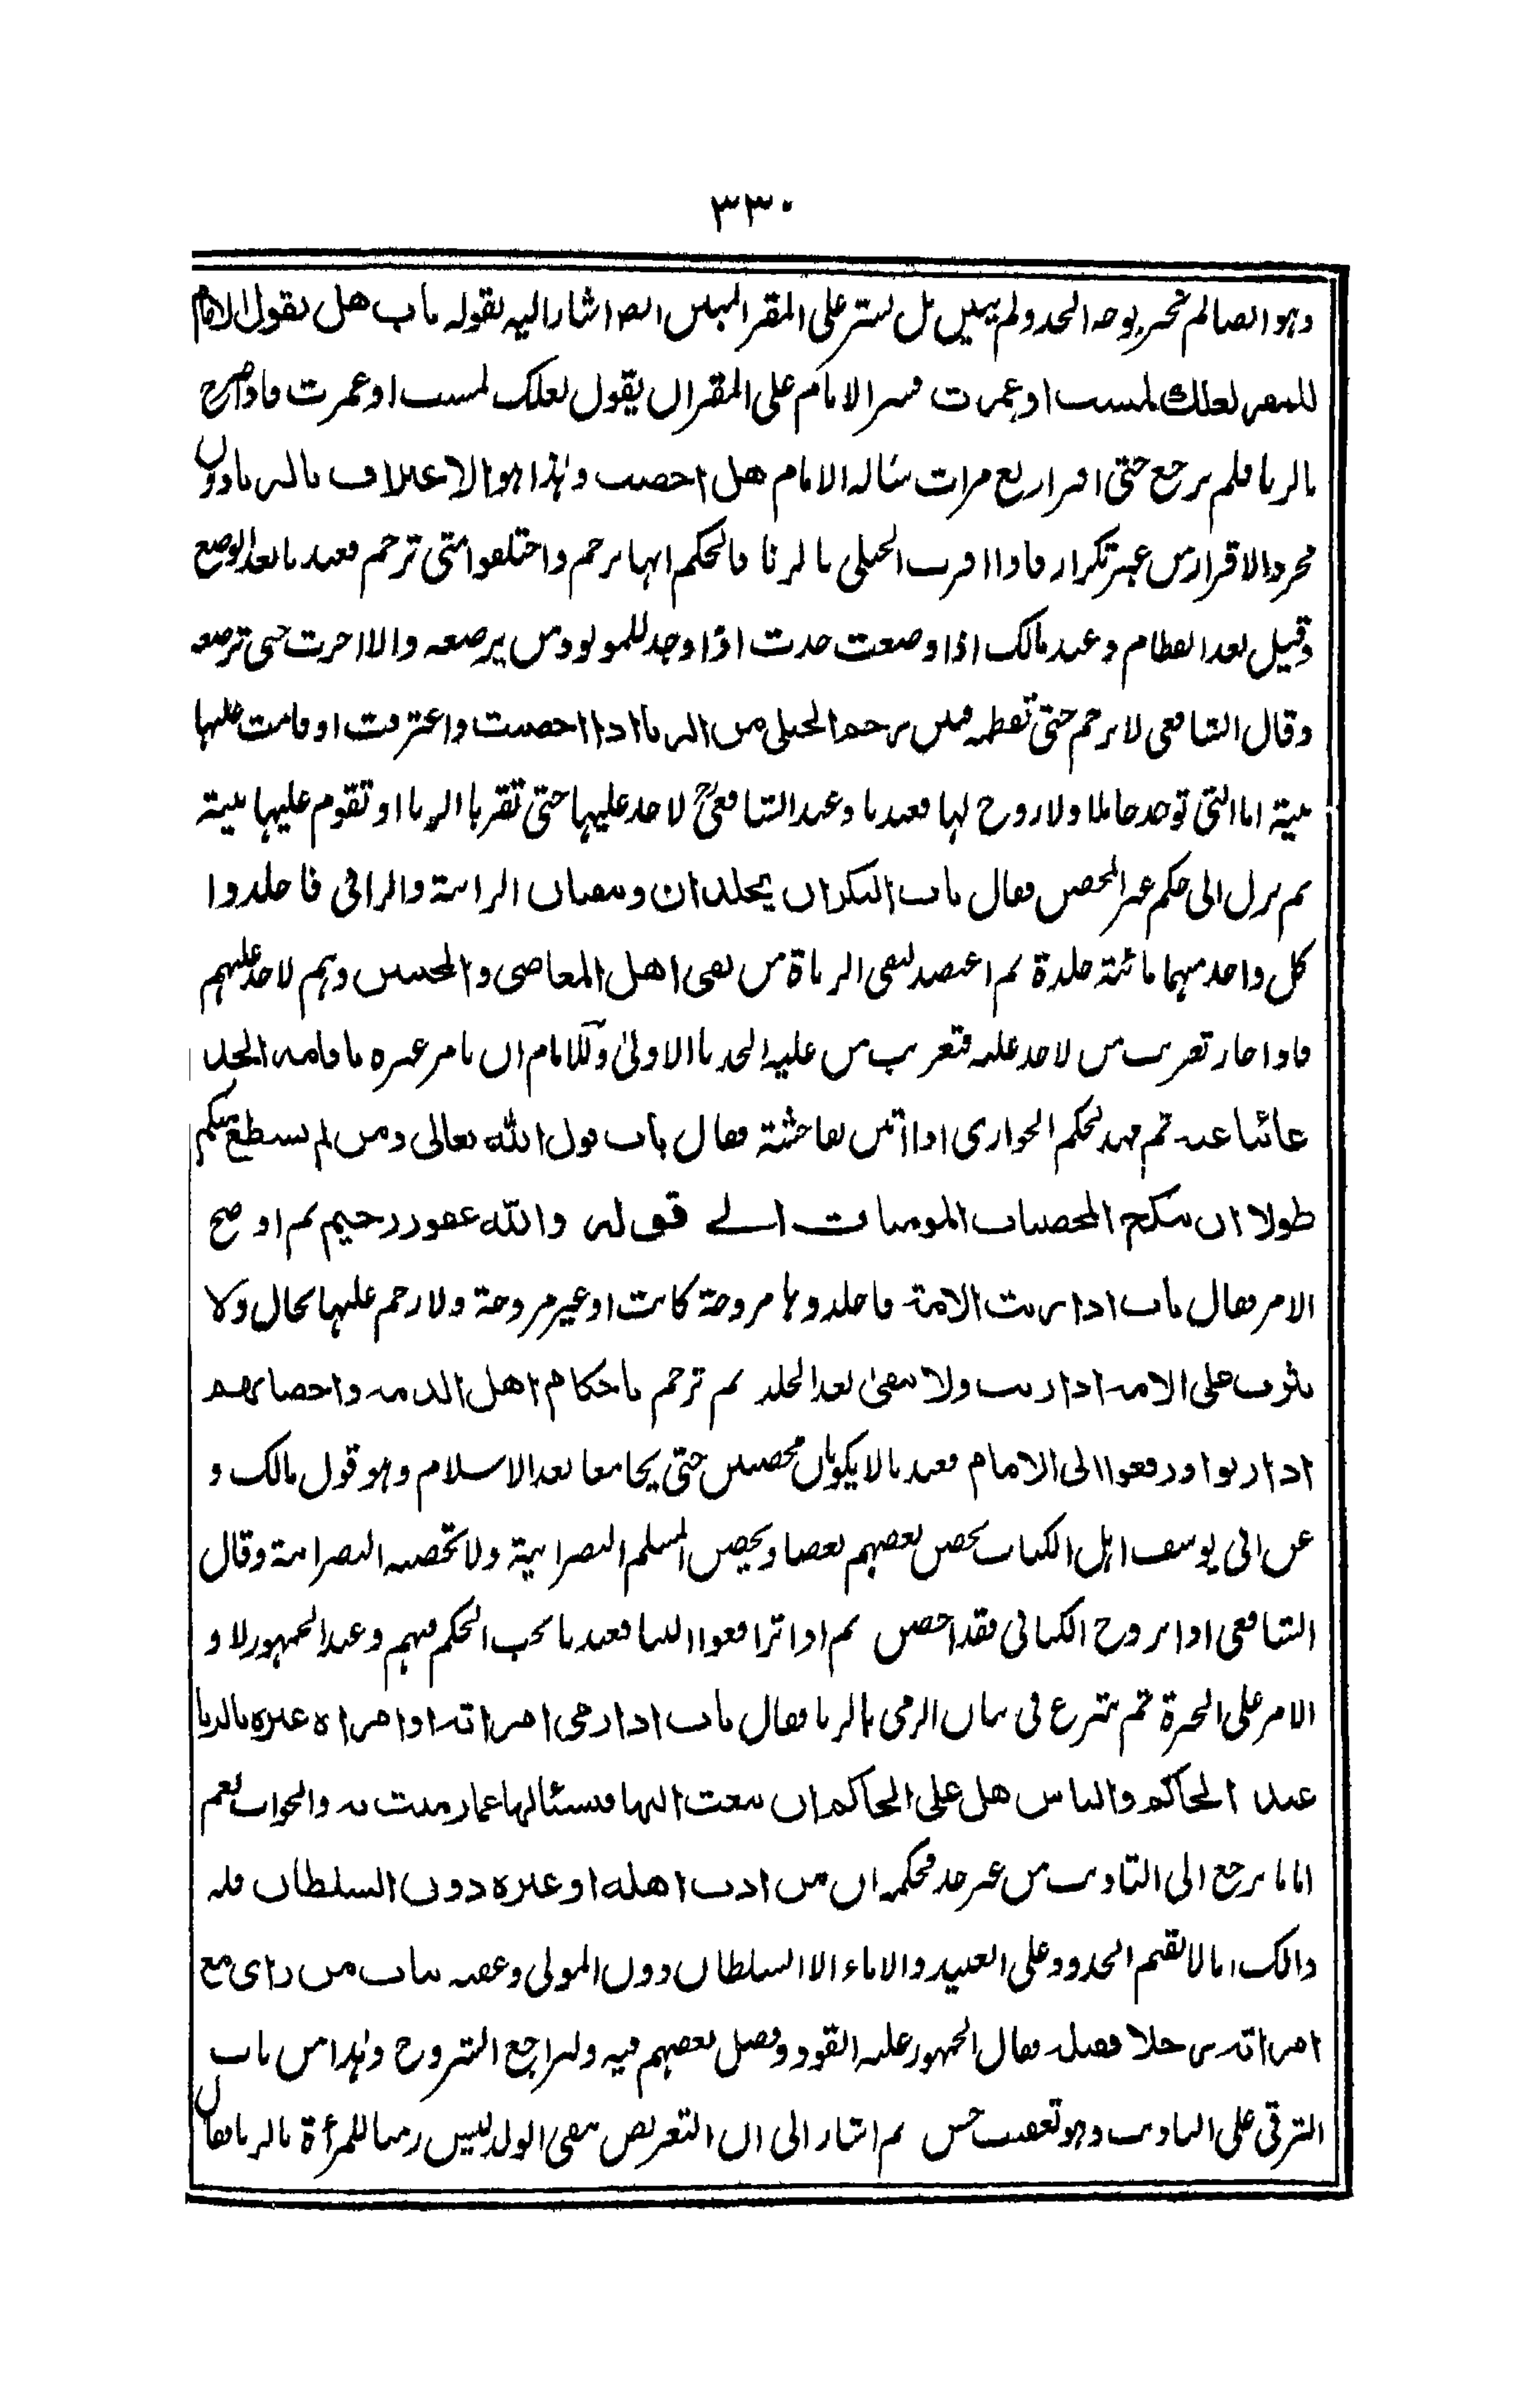 ٣٣٠
وهو ايضا لم يخبر بوجه الحد ولم يبين بل ستر على المقر المبهم ايضا اشار اليه بقوله باب هل يقول الامام
للمقر لعلك لمست او غمزت فستر الامام على المقر ان يقول لعلك لمست او غمزت فاذا صرح
بالزنا فلم يرجع حتى اقر اربع مرات سأله الامام هل احصنت وهذا هو الاعتراف بالزنا دون
مجرد الاقرار من غير تكرار فاذا اقرت الحبلى بالزنا فالحكم انها ترجم واختلفوا متى ترجم فعندنا بعد الوضع
وقيل بعد الفطام وعند مالك اذا وضعت حدت اذا وجد للمولود من يرضعه والا اخرت حتى ترضعه
وقال الشافعي لا ترجم حتى تفطمه فبين رجم الحبلى من الزنا اذا احصنت واعترفت او قامت عليها
بينة اما التي توجد حاملا ولا زوج لها فعندنا وعند الشافعيؒ لا حد عليها حتى تقر بالزنا او تقوم عليها بينة
ثم نزل الى حكم غير المحصن فقال باب البكران يجلدان وينفيان الزانية والزاني فاجلدوا
كل واحد منهما مائة جلدة ثم اعتضد لنفي الزناة من نفى اهل المعاصي والمخنثين وهم لا حد عليهم
فاذا جاز تغريب من لا حد عليه فتغريب من عليه الحد بالاولى وللامام ان يامر غيره باقامة الحد
غائبا عنه ثم مهد لحكم الجواري اذا اتين بفاحشة فقال باب قول الله تعالى ومن لم يستطع منكم
طولا ان ينكح المحصنات المومنات الى قوله والله غفور رحيم ثم اوضح
الامر فقال باب اذا زنت الامة فاجلدوها مزوجة كانت او غير مزوجة ولا رجم عليها بحال ولا
يثرب على الامة اذا زنت ولا تنفى بعد الجلد ثم ترجم باحكام اهل الذمة واحصانهم
اذا زنوا ورفعوا الى الامام فعندنا لا يكونان محصنين حتى يجامعا بعد الاسلام وهو قول مالك و
عن ابي يوسف اهل الكتاب يحصن بعضهم بعضا ويحصن المسلم النصرانية ولا تحصنه النصرانية وقال
الشافعي اذا تزوج الكتابي فقد احصن ثم اذا ترافعوا الينا فعندنا يجب الحكم فيهم وعند الجمهور لا و
الامر على الخيرة ثم شرع في بيان الرمي بالزنا فقال باب اذا رمى امراته او امراة غيره بالزنا
عند الحاكم والناس هل على الحاكم ان يبعث اليها فيسئالها عما رميت به والجواب نعم
اما ما يرجع الى التاديب من غير حد فحكمه ان من ادب اهله او غيره دون السلطان فله
ذالك اما لا يقيم الحدود على العبيد والاماء الا السلطان دون المولى وعقبه بباب من راى مع
امراته رجلا فقتله فقال الجمهور عليه القود وفصل بعضهم فيه وليراجع الشروح وهذا من باب
الترقي على التاديب وهو تعقيب حسن ثم اشار الى ان التعريض بنفي الولد ليس رميا للمرأة بالزنا فقال